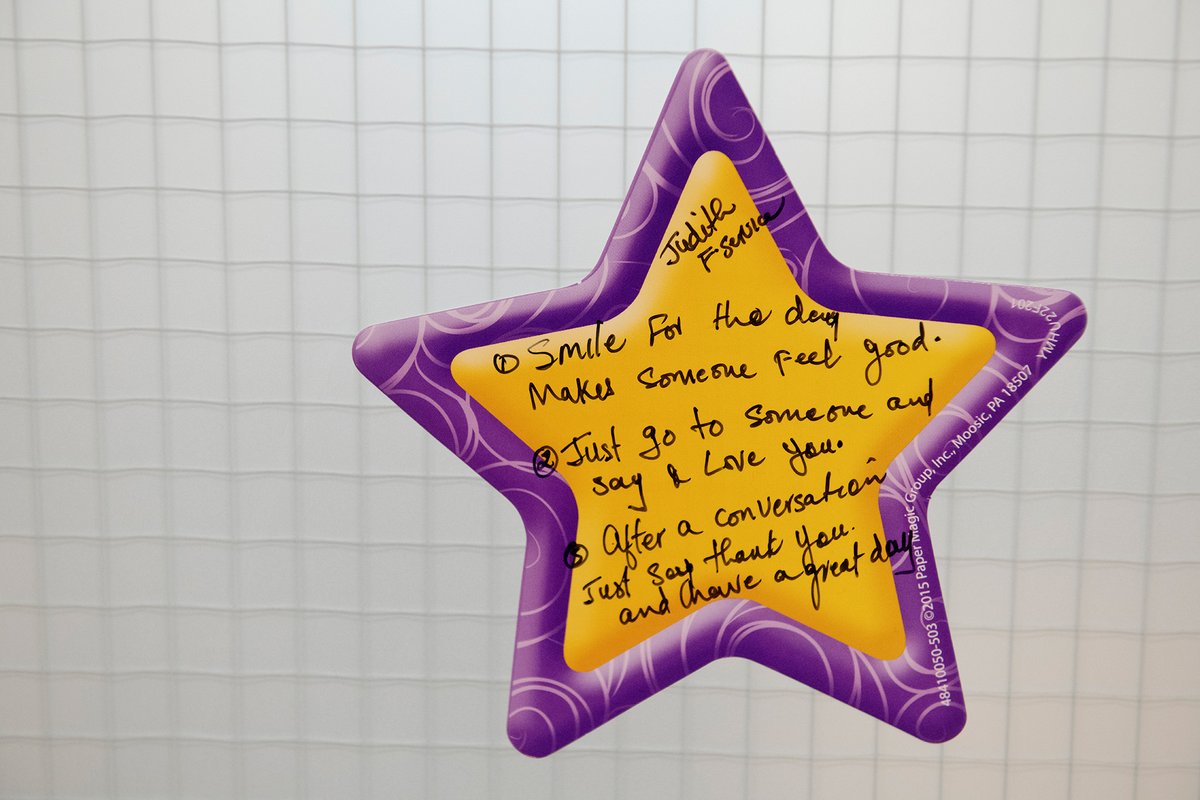 Judith
F service
① Smile For the day
Makes Someone Feel good.
② Just go to Someone and
say & Love you.
③ After a conversation
Just Say thank you.
and have a great day
48410050-503 ©2015 Paper Magic Group, Inc., Moosic, PA 18507 YMHU22F201